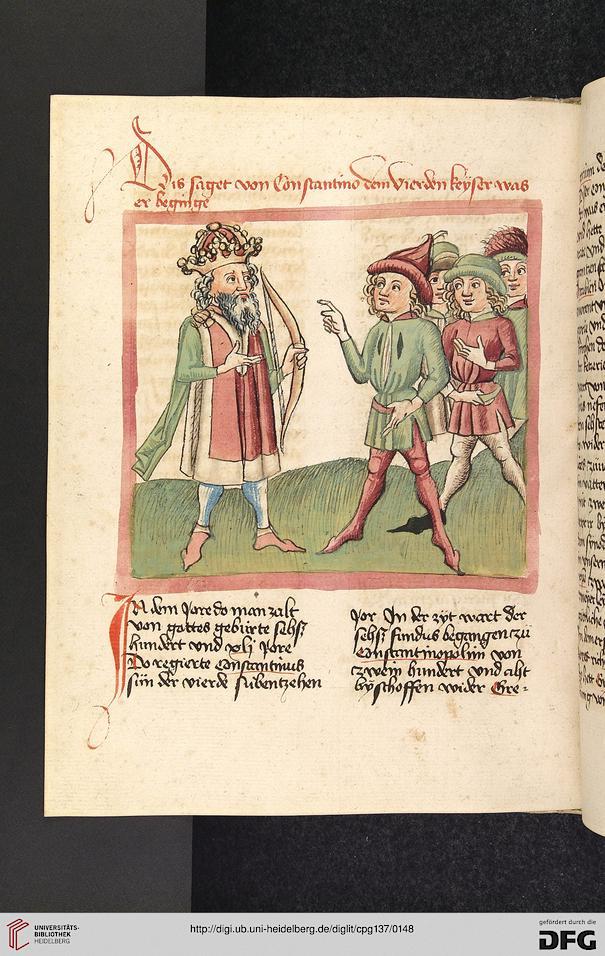 Dis saget von Constantino dem vierden keyser was
er beginge
IN dem Jore do man zalt
von gottes gebürte sehs
hundert vnd xlj Jore
Do regierte Constantinus
sün der vierde sübentzehen
Jor In der zyt wart der
sehs sindus begangen zü
Constantinopolim von
zwein hundert vnd aht
byschoffen wider Gre-
UNIVERSITÄTS-
BIBLIOTHEK
HEIDELBERG
http://digi.ub.uni-heidelberg.de/diglit/cpg137/0148
gefördert durch die
DFG